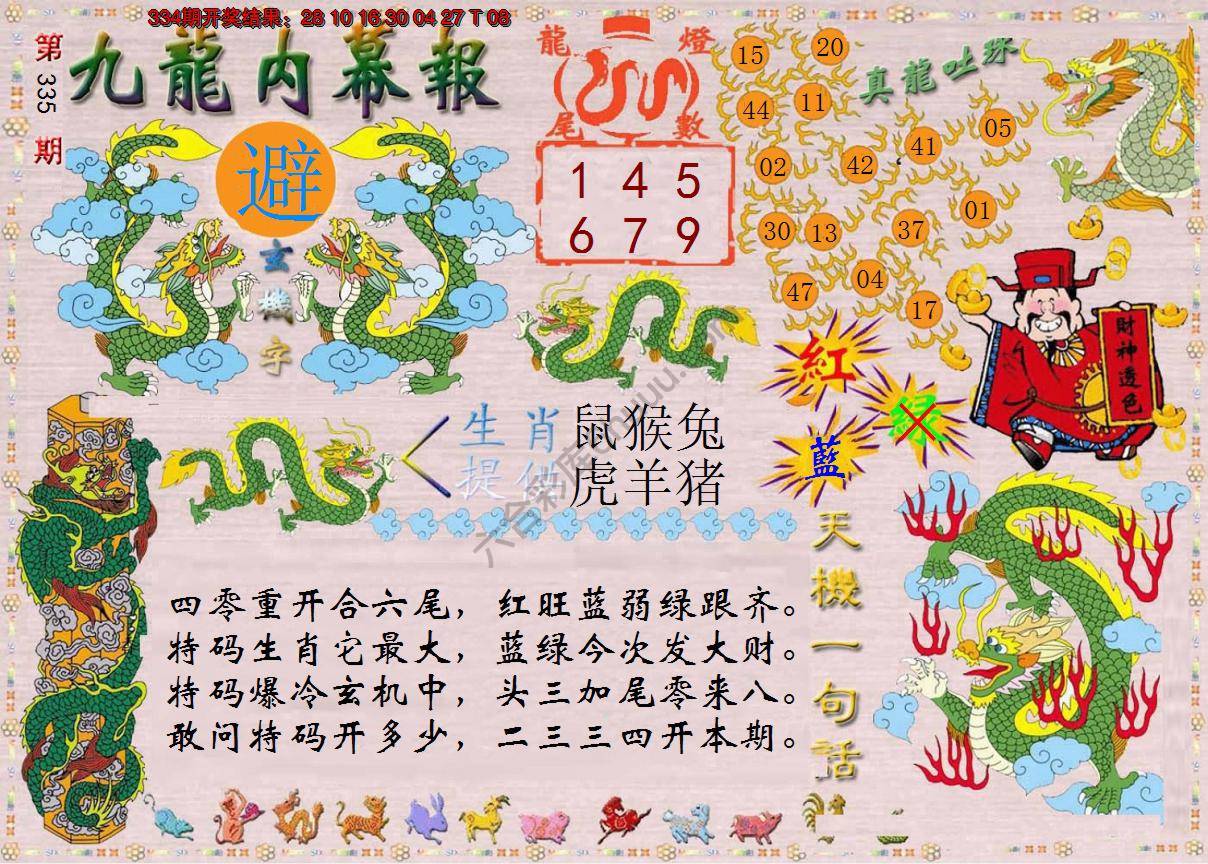 334期开奖结果：28 10 16 30 04 27 T 08
第335期
九龍内幕報
避
玄機字
龍燈尾數
1 4 5
6 7 9
真龍吐珠
15
20
44
11
02
42
41
05
30
13
37
01
47
04
17
紅
绿
藍
財神透色
生肖
提供
鼠猴兔
虎羊猪
天機一句話
四零重开合六尾，红旺蓝弱绿跟齐。
特码生肖它最大，蓝绿今次发大财。
特码爆冷玄机中，头三加尾零来八。
敢问特码开多少，二三三四开本期。